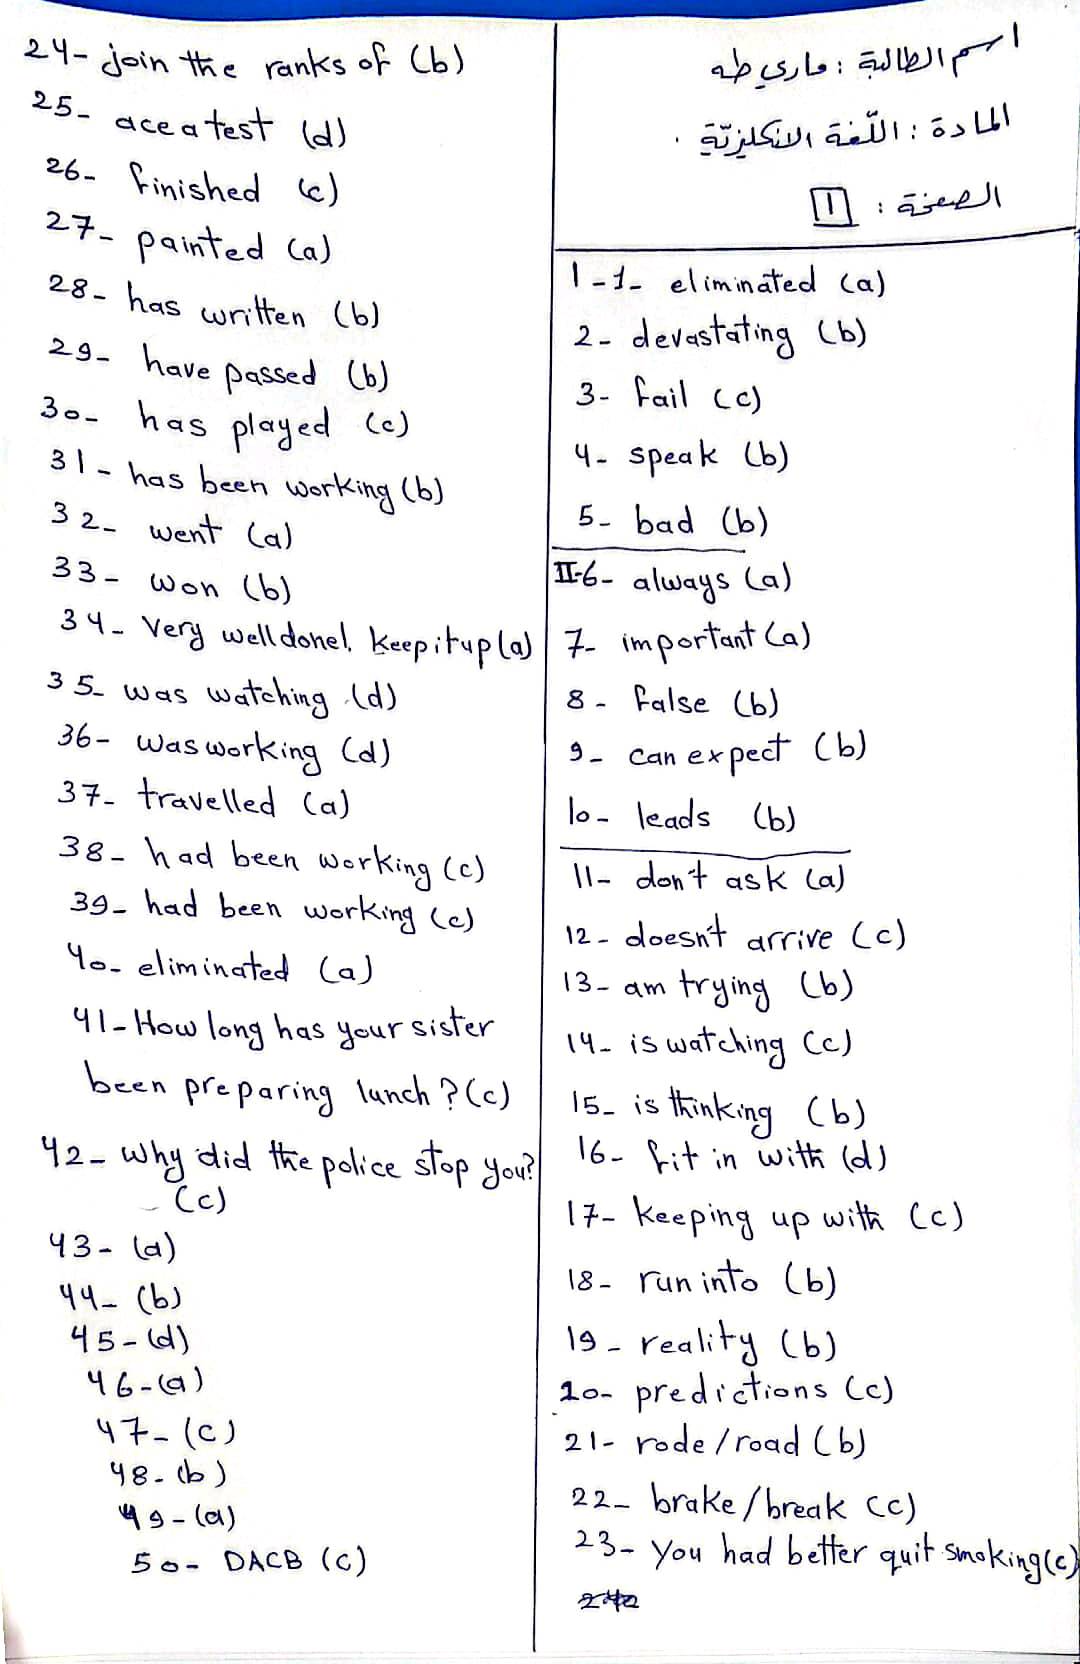 اسم الطالبة : ماري طه
المادة : اللّغة الانكليزيّة .
الصفحة : 1
I-1- eliminated (a)
2- devastating (b)
3- fail (c)
4- speak (b)
5- bad (b)
II-6- always (a)
7- important (a)
8- false (b)
9- can expect (b)
10- leads (b)
11- don't ask (a)
12- doesn't arrive (c)
13- am trying (b)
14- is watching (c)
15- is thinking (b)
16- fit in with (d)
17- keeping up with (c)
18- run into (b)
19- reality (b)
20- predictions (c)
21- rode/road (b)
22- brake/break (c)
23- You had better quit smoking (c)
24- join the ranks of (b)
25- ace a test (d)
26- finished (c)
27- painted (a)
28- has written (b)
29- have passed (b)
30- has played (c)
31- has been working (b)
32- went (a)
33- won (b)
34- Very well done!, keep it up (a)
35- was watching (d)
36- was working (d)
37- travelled (a)
38- had been working (c)
39- had been working (c)
40- eliminated (a)
41- How long has your sister
been preparing lunch? (c)
42- Why did the police stop you?
(c)
43- (a)
44- (b)
45- (d)
46- (a)
47- (c)
48- (b)
49- (a)
50- DACB (c)